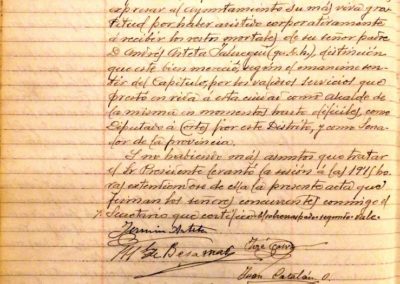 expresar al ayuntamiento su más viva gra-
titud por haber asistido corporativamente
á recibir los restos mortales de su señor padre
D. Andrés Arteta Jáuregui (q.s.g.h.), distinción
que este bien mereció, según el unánime sen-
tir del Capítulo, por los valiosos servicios que
prestó en vida á esta ciudad como Alcalde de
la misma en momentos harto difíciles, como
Diputado á Cortes por este Distrito, y como Sena-
dor de la provincia.
Y no habiendo más asuntos que tratar
el Sr. Presidente levantó la sesión á las 19 1/2 ho-
ras extendiéndose de ella la presente acta que
firman los señores concurrentes conmigo el
Secretario que certifico.
Fermín Arteta
José
M. de Besamat
Juan Catalán